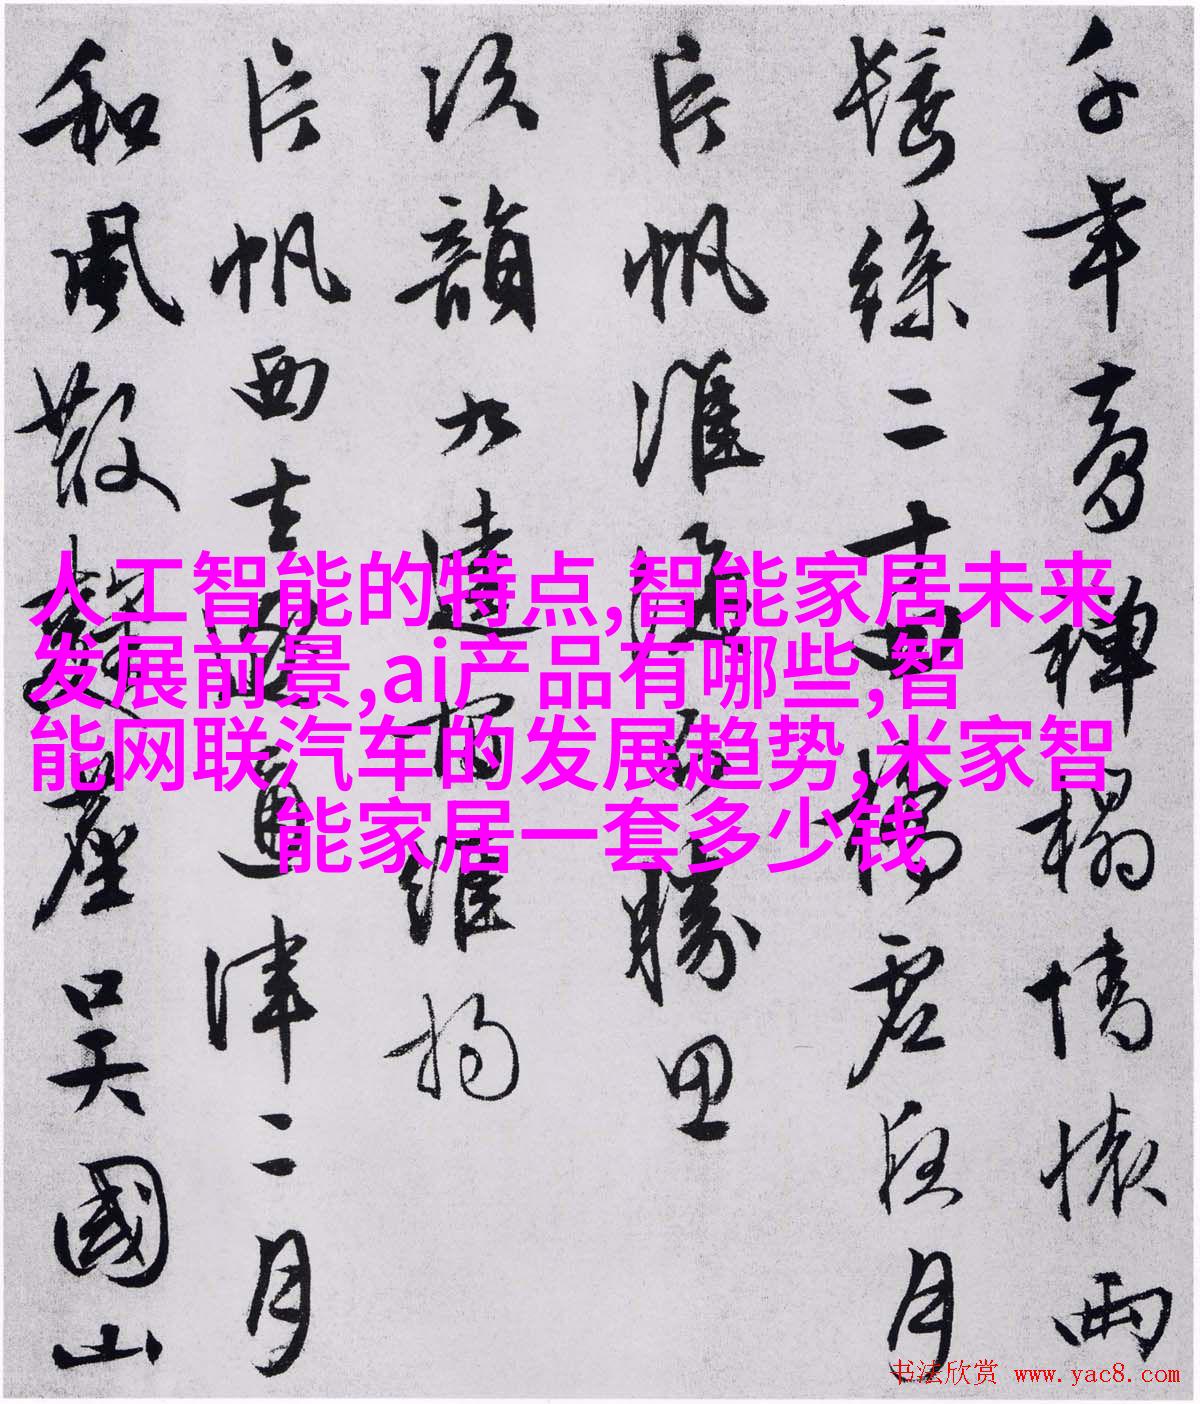 千年
禅榻情懷兩
絲二十四橋
月
片帆淮
勝
次韻
維揚
片帆西去路通津二月
和風散麴塵吴國山
人工智能的特点,智能家居未来
发展前景,ai产品有哪些,智
能网联汽车的发展趋势,米家智
能家居一套多少钱
书法欣赏 www.yac8.com